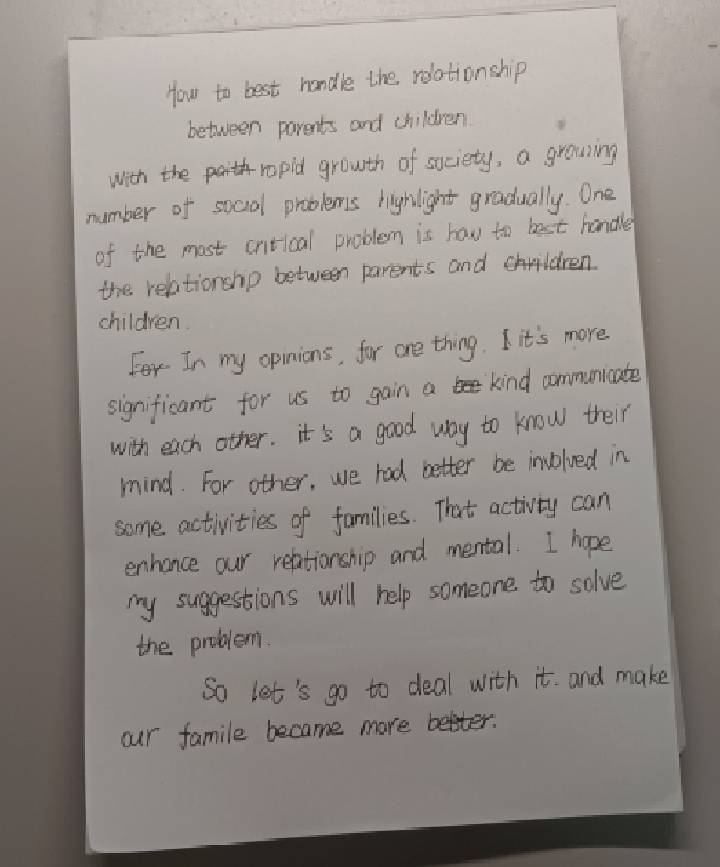 How to best handle the relationship
between parents and children.
With the paith rapid growth of society, a growing
number of social problems highlight gradually. One
of the most critical problem is how to best handle
the relationship between parents and chrildren
children.
For In my opinions, for one thing. I it's more
significant for us to gain a bee kind communicate
with each other. it's a good way to know their
mind. For other, we had better be involved in
some activities of families. That activty can
enhance our relationship and mental. I hope
my suggestions will help someone to solve
the problem.
So let's go to deal with it. and make
our famile became more better.